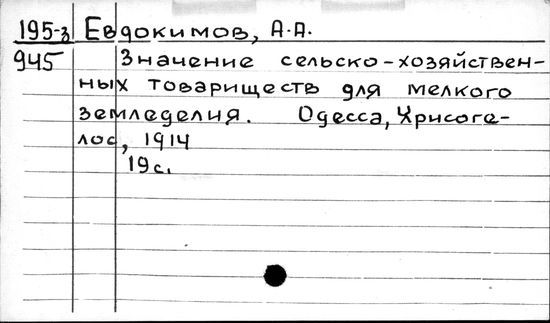 195-з Евдокимов, А.А.
945 Значение сельско-хозяйствен-
ных товариществ для мелкого
земледелия. Одесса, Хрисоге-
лос, 1914
19с.